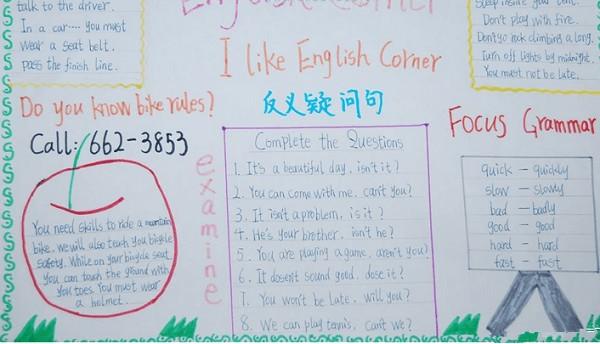 talk to the driver.
In a car.... you must
wear a seat belt.
pass the finish line.
English Corner
I like English Corner
Don't play with fire.
Don't go rock climbing along.
Turn off lights by midnight.
You must not be late.
Do you know bike rules?
Call: 662-3853
You need skills to ride a mountain
bike. We will also teach you bicycle
safety. While on your bicycle seat.
you can touch the ground with
you toes. You must wear
a helmet.
examine
反义疑问句
Complete the Questions
1. It's a beautiful day, isn't it?
2. You can come with me, can't you?
3. It isn't a problem, is it?
4. He's your brother, isn't he?
5. You are playing a game, aren't you?
6. It dosen't sound good, dose it?
7. You won't be late, will you?
8. We can play tennis, can't we?
Focus Grammar
quick — quickly
slow — slowly
bad — badly
good — good
hard — hard
fast — fast